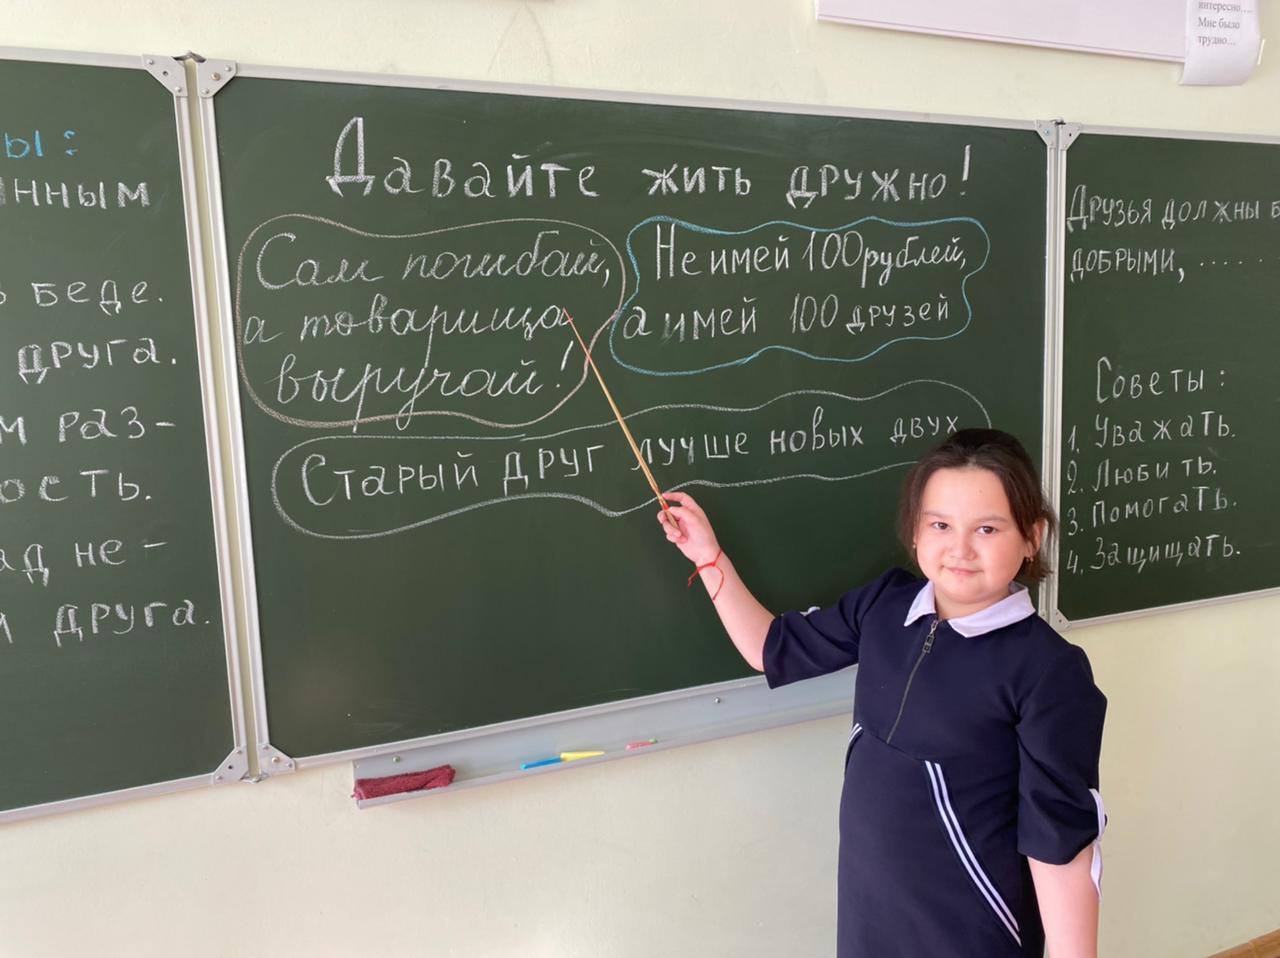 интересно....
Мне было
трудно...
беде.
друга.
раз-
не-
друга.
Давайте жить дружно!
Сам погибай,
а товарища
выручай!
Не имей 100 рублей,
а имей 100 друзей
Старый друг лучше новых двух
Друзья должны
добрыми, ......
Советы:
1. Уважать.
2. Любить.
3. Помогать.
4. Защищать.